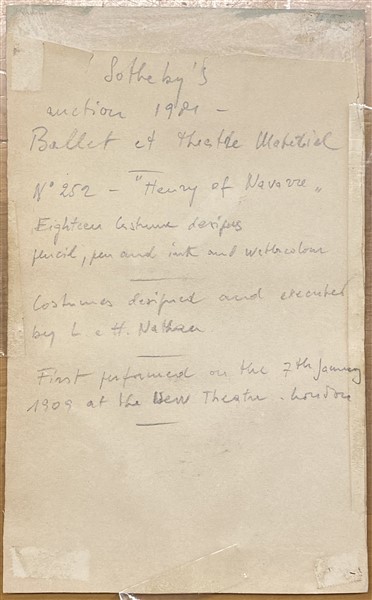 Sotheby's
auction 1981 -
Ballet et Theatre Material
N° 252 - "Henry of Navarre"
Eighteen Costume designs
pencil, pen and ink and watercolour
Costumes designed and executed
by L & H. Nathan
First performed on the 7th January
1909 at the New Theatre. London